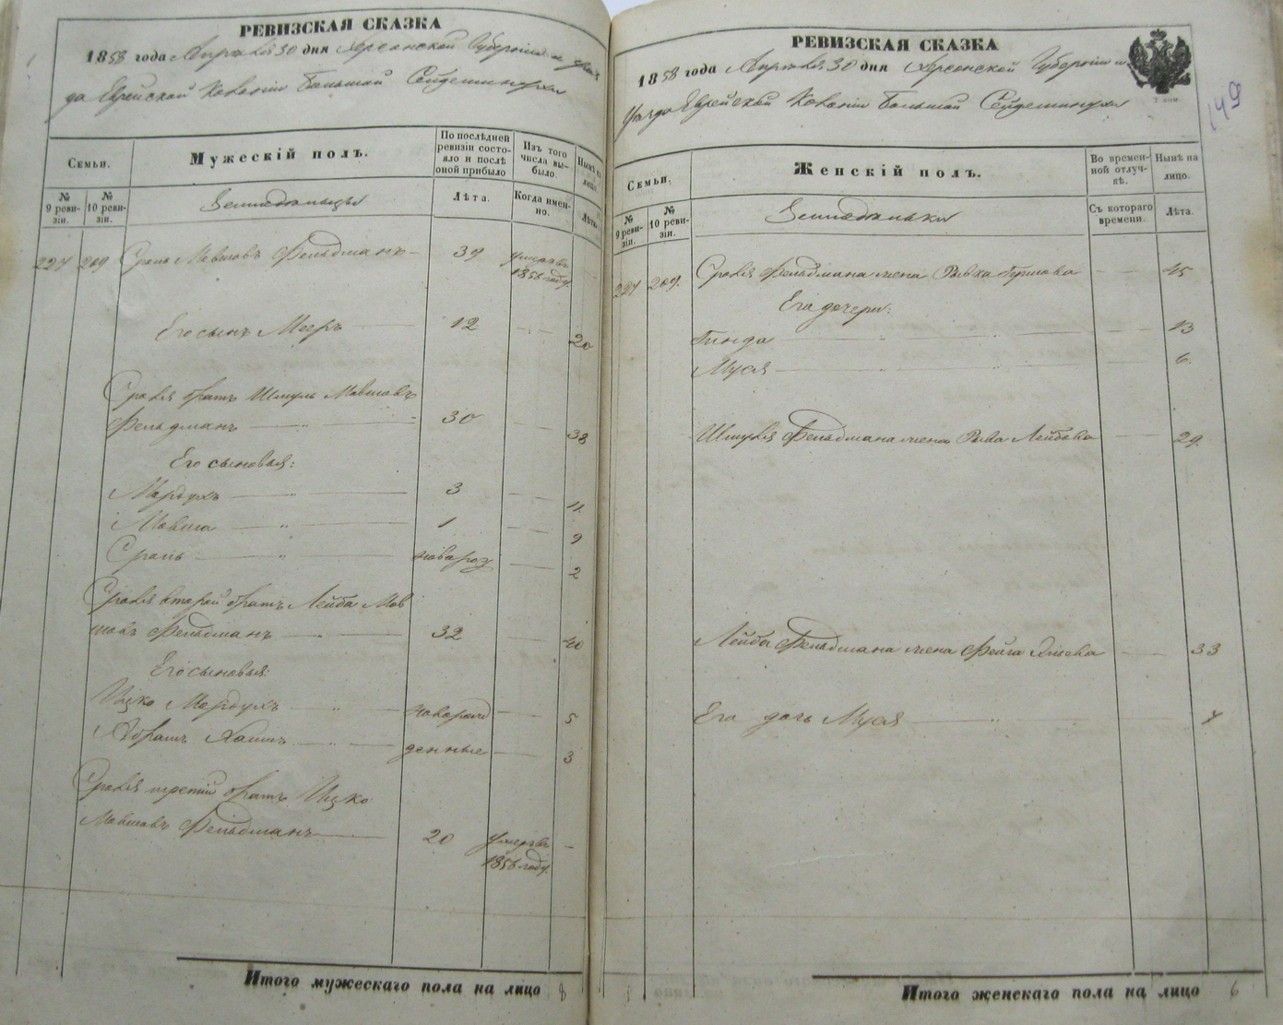 РЕВИЗСКАЯ СКАЗКА
1858 года Апрѣля 30 дня Херсонской Губерніи и уѣз
да Еврейской Колоніи Большой Сейдеминухи
Семьи.
Мужескій полъ.
По послѣдней ревизіи состояло и послѣ оной прибыло
Изъ того числа выбыло.
Нынѣ на лицо.
№ 9 ревизіи.
№ 10 ревизіи.
Земледѣльцы
Лѣта.
Когда именно.
Лѣта.
227 209 Сроль Мовшовъ Фельдманъ 39 умеръ въ 1856 году —
Его сынъ Мееръ 12 20
Сроля братъ Шмуль Мовшовъ
Фельдманъ 30 38
Его сыновья:
Мордухъ 3 11
Мовша 1 9
Сроль новорож 2
Сроля второй братъ Лейба Мов
шовъ Фельдманъ 32 40
Его сыновья:
Ицко Мордухъ новорож 5
Абрамъ Хаимъ денные 3
Сроля третій братъ Ицко
Мовшовъ Фельдманъ 20 умеръ въ 1856 году —
Итого мужескаго пола на лицо 8
РЕВИЗСКАЯ СКАЗКА
1858 года Апрѣля 30 дня Херсонской Губерніи и
Уѣзда Еврейской Колоніи Большой Сейдеминухи
149
Семьи.
Женскій полъ.
Во временной отлучкѣ.
Нынѣ на лицо.
№ 9 ревизіи.
№ 10 ревизіи.
Земледѣльки
Съ котораго времени.
Лѣта.
227 209 Сроля Фельдмана жена Рывка Гершова 45
Его дочери:
Гинда 13
Муся 6
Шмуля Фельдмана жена Рыва Лейбова 29
Лейба Фельдмана жена Фейга 33
Его дочь Муся
Итого женскаго пола на лицо 6